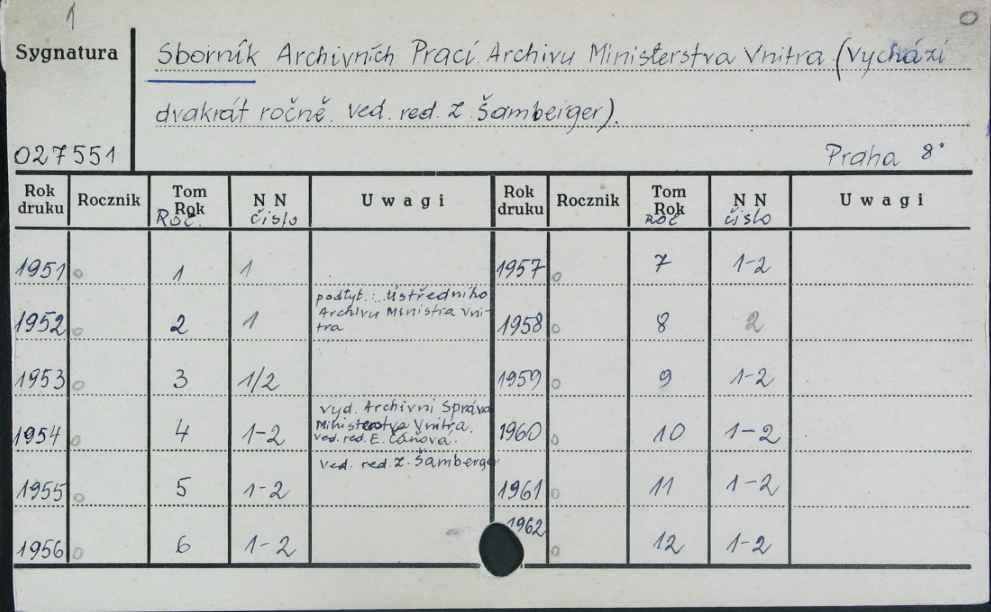 1
0
Sygnatura
Sborník Archivních Prací Archivu Ministerstva Vnitra (Vychází
dvakrát ročně. ved. red. Z. Šamberger).
027551
Praha 8°
Rok druku Rocznik Tom Rok Roč. N N číslo Uwagi Rok druku Rocznik Tom Rok roč N N číslo Uwagi
1951 0 1 1 1957 0 7 1-2
1952 0 2 1 podtyt.: Ústředního Archivu Ministra Vni-tra 1958 0 8 2
1953 0 3 1/2 1959 0 9 1-2
1954 0 4 1-2 vyd. Archivní Správa Ministerstva Vnitra. ved. red. E. Čáňová. 1960 0 10 1-2
1955 0 5 1-2 ved. red. Z. Šamberger 1961 0 11 1-2
1956 0 6 1-2 1962 0 12 1-2